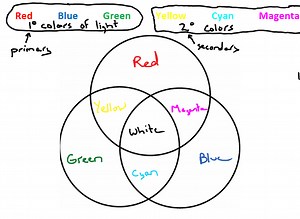 Red Blue Green
1° colors of light
primary
Yellow Cyan Magenta
2° colors
secondary
Red
Yellow
Magenta
White
Green
Cyan
Blue